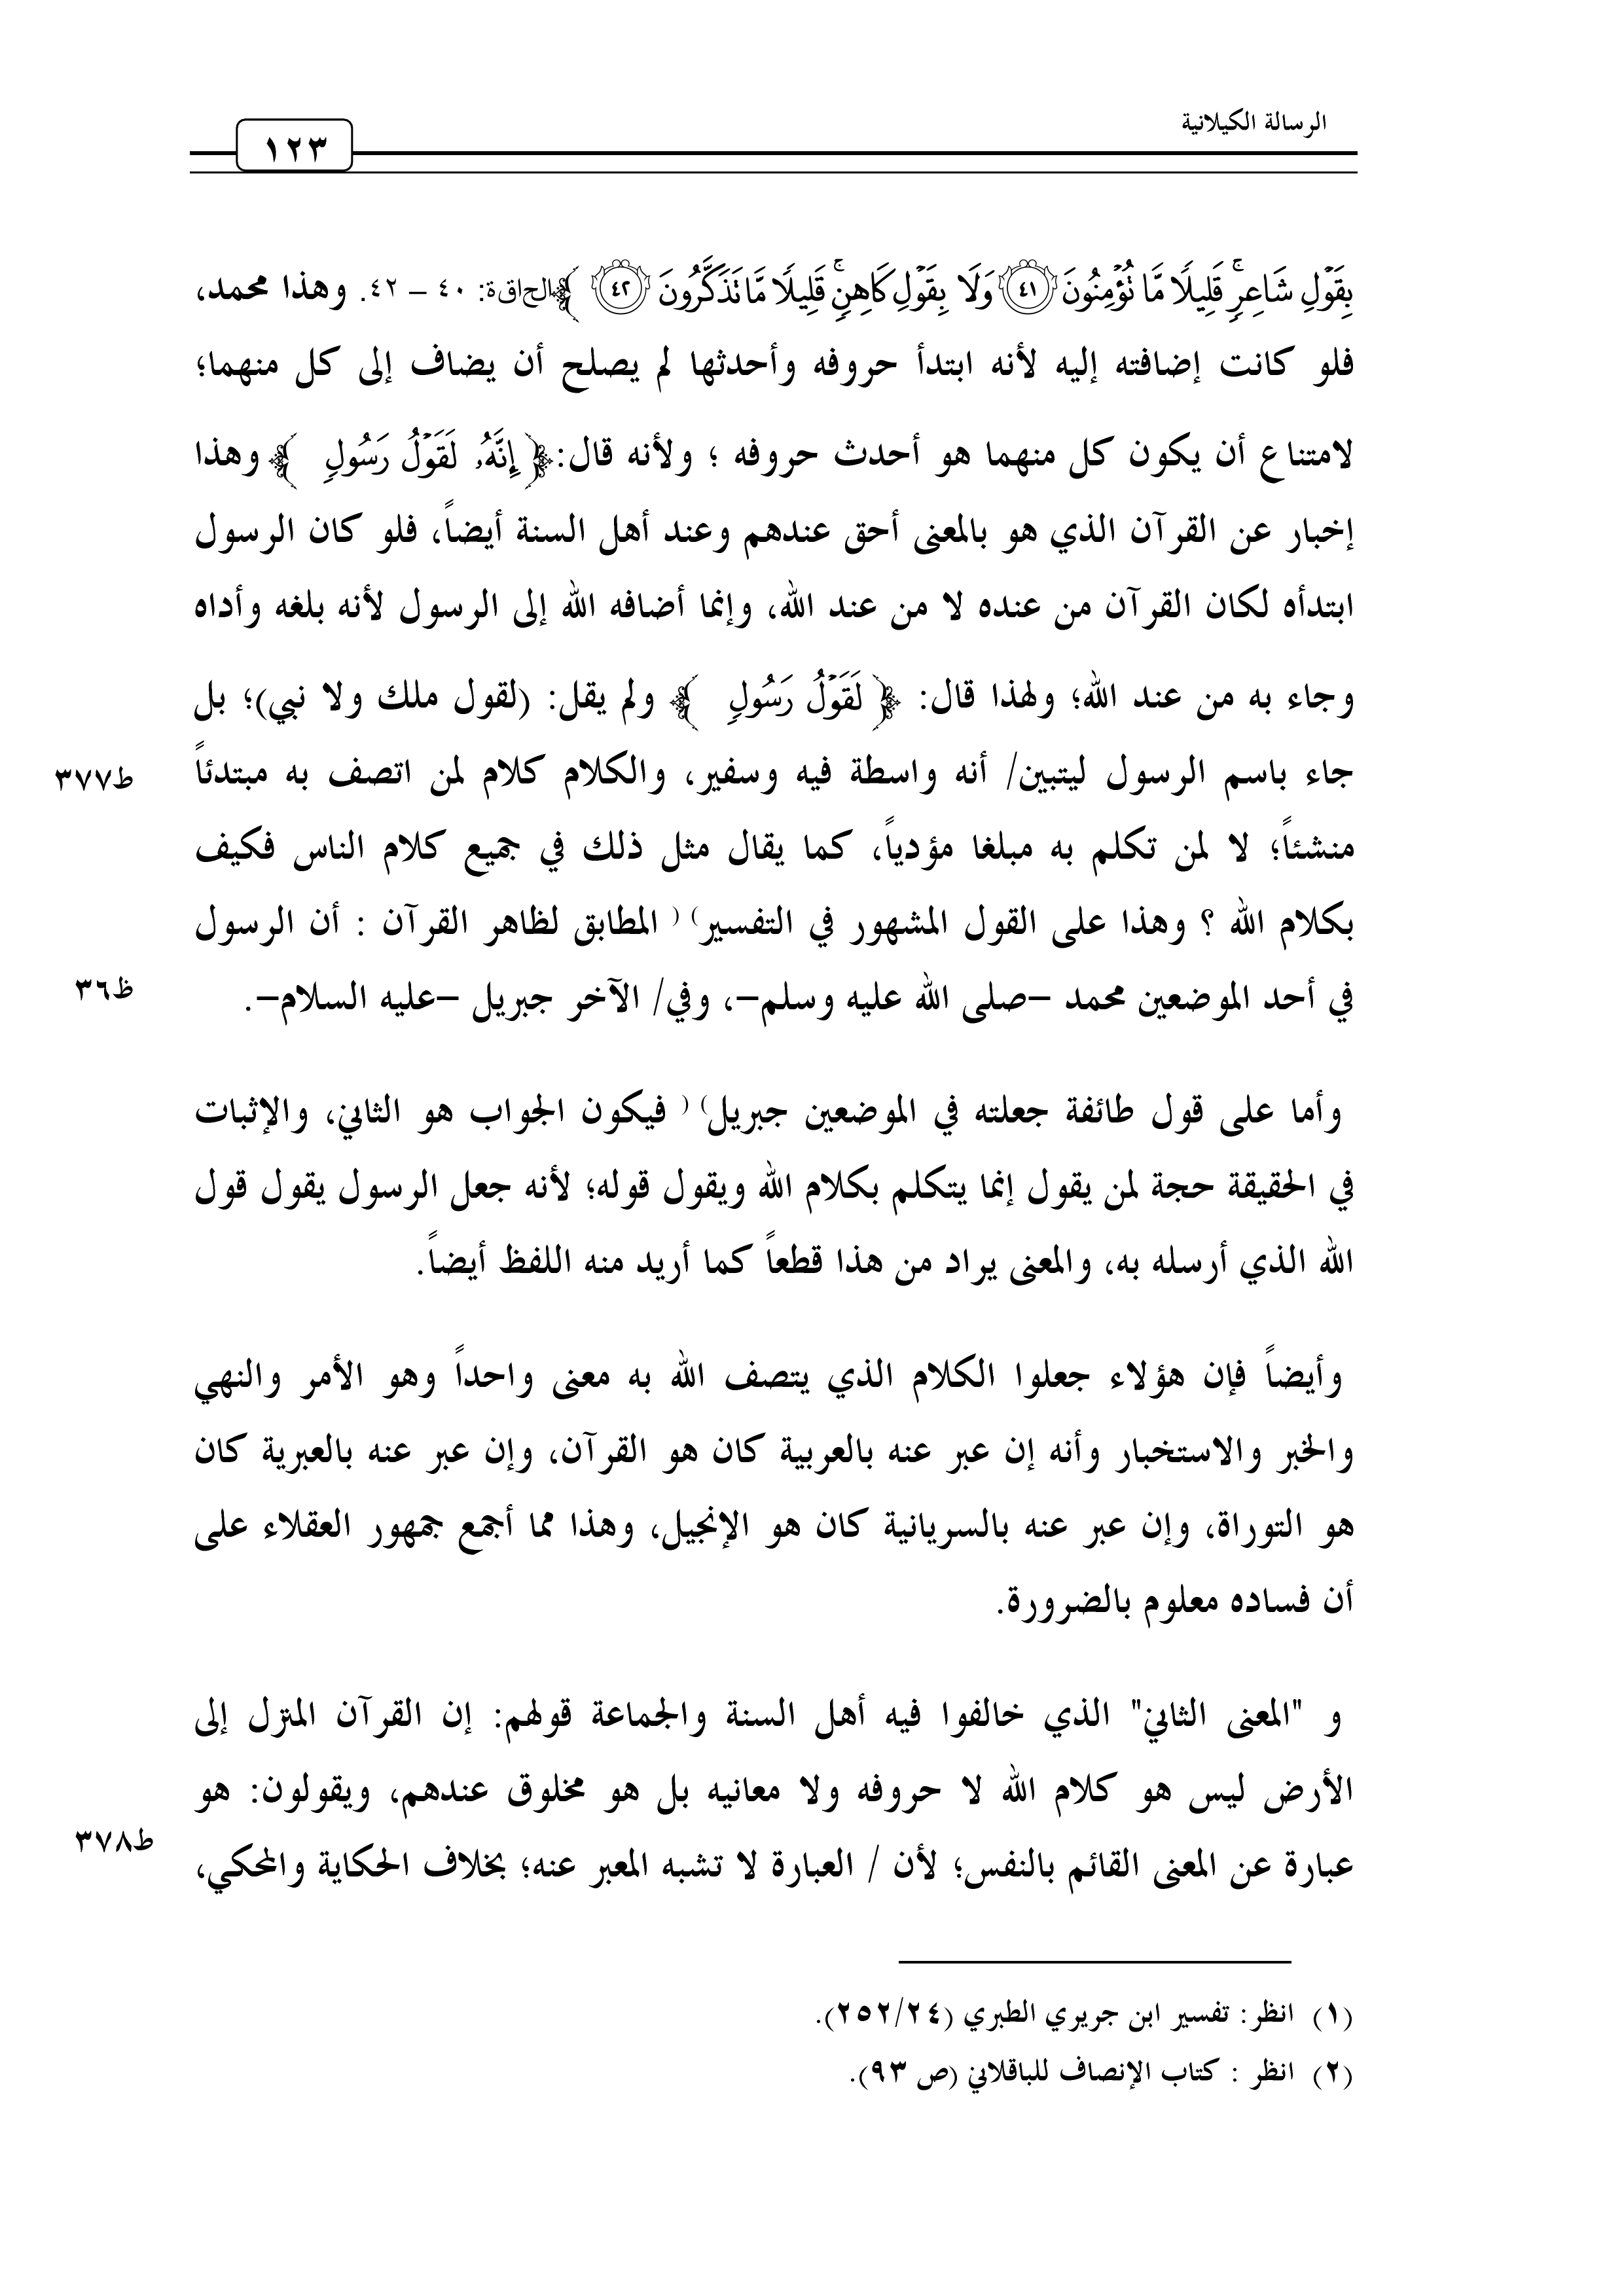 الرسالة الكيلانية
١٢٣
بِقَوْلِ شَاعِرٍ ۚ قَلِيلًا مَّا تُؤْمِنُونَ ٤١ وَلَا بِقَوْلِ كَاهِنٍ ۚ قَلِيلًا مَّا تَذَكَّرُونَ ٤٢ ﴾الحاقة: ٤٠ – ٤٢. وهذا محمد،
فلو كانت إضافته إليه لأنه ابتدأ حروفه وأحدثها لم يصلح أن يضاف إلى كل منهما؛
لامتناع أن يكون كل منهما هو أحدث حروفه ؛ ولأنه قال:﴿ إِنَّهُۥ لَقَوْلُ رَسُولٍ ﴾ وهذا
إخبار عن القرآن الذي هو بالمعنى أحق عندهم وعند أهل السنة أيضاً، فلو كان الرسول
ابتدأه لكان القرآن من عنده لا من عند الله، وإنما أضافه الله إلى الرسول لأنه بلغه وأداه
وجاء به من عند الله؛ ولهذا قال: ﴿ لَقَوْلُ رَسُولٍ ﴾ ولم يقل: (لقول ملك ولا نبي)؛ بل
جاء باسم الرسول ليتبين/ أنه واسطة فيه وسفير، والكلام كلام لمن اتصف به مبتدئاً
ط٣٧٧
منشئاً؛ لا لمن تكلم به مبلغا مؤدياً، كما يقال مثل ذلك في جميع كلام الناس فكيف
بكلام الله ؟ وهذا على القول المشهور في التفسير( ) المطابق لظاهر القرآن : أن الرسول
في أحد الموضعين محمد –صلى الله عليه وسلم–، وفي/ الآخر جبريل –عليه السلام–.
ظ٣٦
وأما على قول طائفة جعلته في الموضعين جبريل( ) فيكون الجواب هو الثاني، والإثبات
في الحقيقة حجة لمن يقول إنما يتكلم بكلام الله ويقول قوله؛ لأنه جعل الرسول يقول قول
الله الذي أرسله به، والمعنى يراد من هذا قطعاً كما أريد منه اللفظ أيضاً.
وأيضاً فإن هؤلاء جعلوا الكلام الذي يتصف الله به معنى واحداً وهو الأمر والنهي
والخبر والاستخبار وأنه إن عبر عنه بالعربية كان هو القرآن، وإن عبر عنه بالعبرية كان
هو التوراة، وإن عبر عنه بالسريانية كان هو الإنجيل، وهذا مما أجمع جمهور العقلاء على
أن فساده معلوم بالضرورة.
و "المعنى الثاني" الذي خالفوا فيه أهل السنة والجماعة قولهم: إن القرآن المنزل إلى
الأرض ليس هو كلام الله لا حروفه ولا معانيه بل هو مخلوق عندهم، ويقولون: هو
عبارة عن المعنى القائم بالنفس؛ لأن / العبارة لا تشبه المعبر عنه؛ بخلاف الحكاية والمحكي،
ط٣٧٨
(١) انظر: تفسير ابن جريري الطبري (٢٥٢/٢٤).
(٢) انظر : كتاب الإنصاف للباقلاني (ص ٩٣).